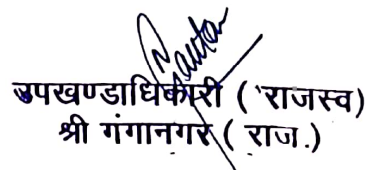 उपखण्डाधिकारी ( राजस्व)
श्री गंगानगर ( राज.)